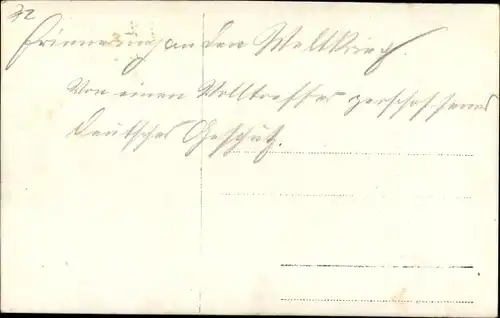 32
Erinnerung an den Weltkrieg.
Von einen Volltreffer zerschossenes
deutsches Geschütz.